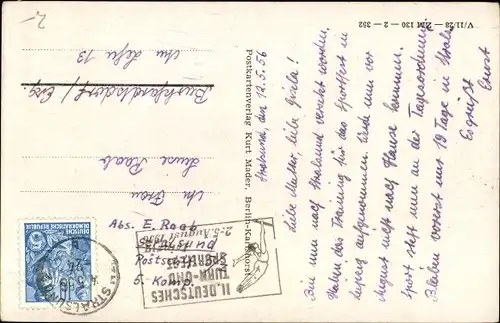 V/11/28 — ZM 130 — 2 — 352
Stralsund, den 12.5.56
Liebe Mutter, liebe Gisela!
Bin nun nach Stralsund versetzt worden.
Haben das Training für das Sportfest in
Leipzig aufgenommen. Werde nun vor
August nicht nach Hause kommen.
Sport steht nun an der Tagesordnung.
Bleiben vorerst mal 19 Tage in Stralsund
Es grüßt
Ernst
Postkartenverlag Kurt Mader, Berlin-Karlshorst
2-
DEUTSCHE
DEMOKRATISCHE REPUBLIK
STRALSUND
II. DEUTSCHES
TURN- UND
SPORTFEST
2.-5. August 1956
Abs. E. Raab
Stralsund
Postschließf.
5. Komp.
An Frau
Luise Raab
Burkhardtsdorf / Erzg.